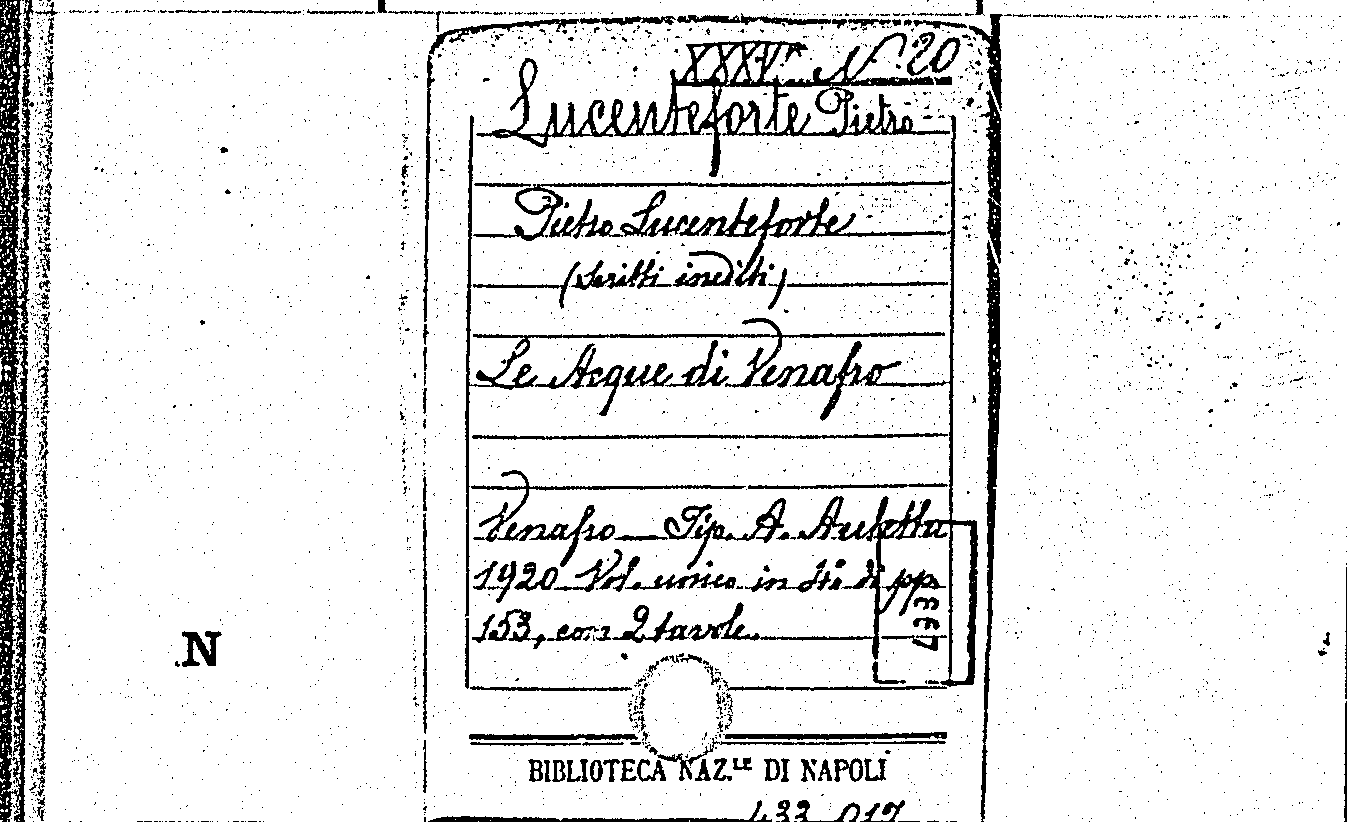 XXXV. N. 20
Lucenteforte Pietro
Pietro Lucenteforte
(Scritti inediti)
Le Acque di Venafro
Venafro — Tip. A. Auletta
1920 Vol. unico in di pp.
153, con 2 tavole.
4337
N
BIBLIOTECA NAZ.LE DI NAPOLI
433 017